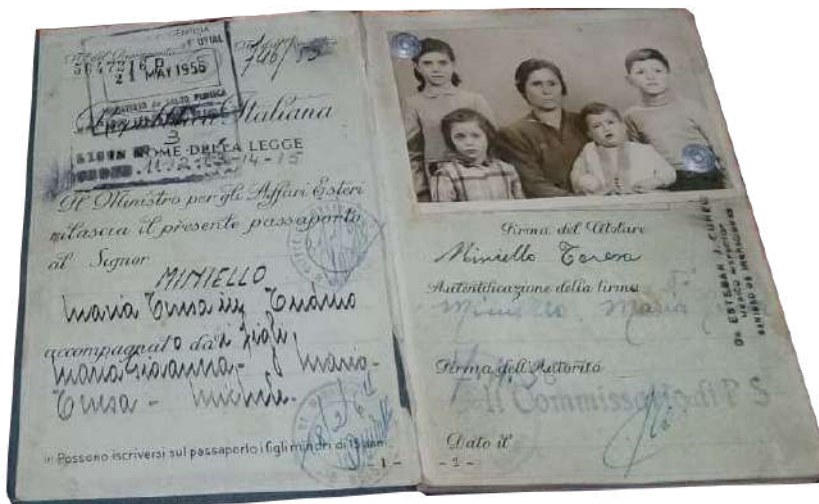 5647216 D
21 MAY 1955
746/55
Repubblica Italiana
3
IN NOME DELLA LEGGE
11-12-13-14-15
Il Ministro per gli Affari Esteri
rilascia il presente passaporto
al Signor
MINIELLO
Maria Teresa in
accompagnato da i figli
Maria Giovanna - Mario -
Teresa - Michele -
Possono iscriversi sul passaporto i figli minori di 15 anni
- 1 -
Firma del titolare
Miniello Teresa
Autentificazione della firma
Miniello Maria
Firma dell'Autorità
Il Commissario di P S
Dato il
- 2 -
Dr ESTEBAN J.
MEDICO INSPECTOR